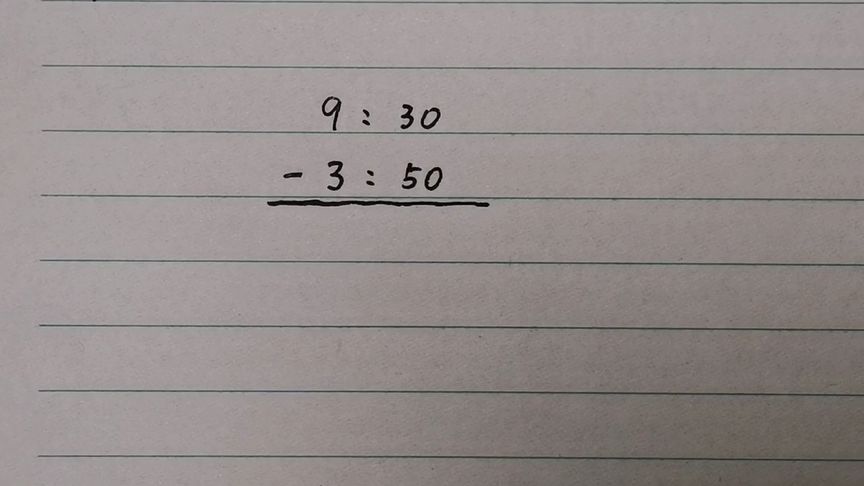 9 : 30
- 3 : 50